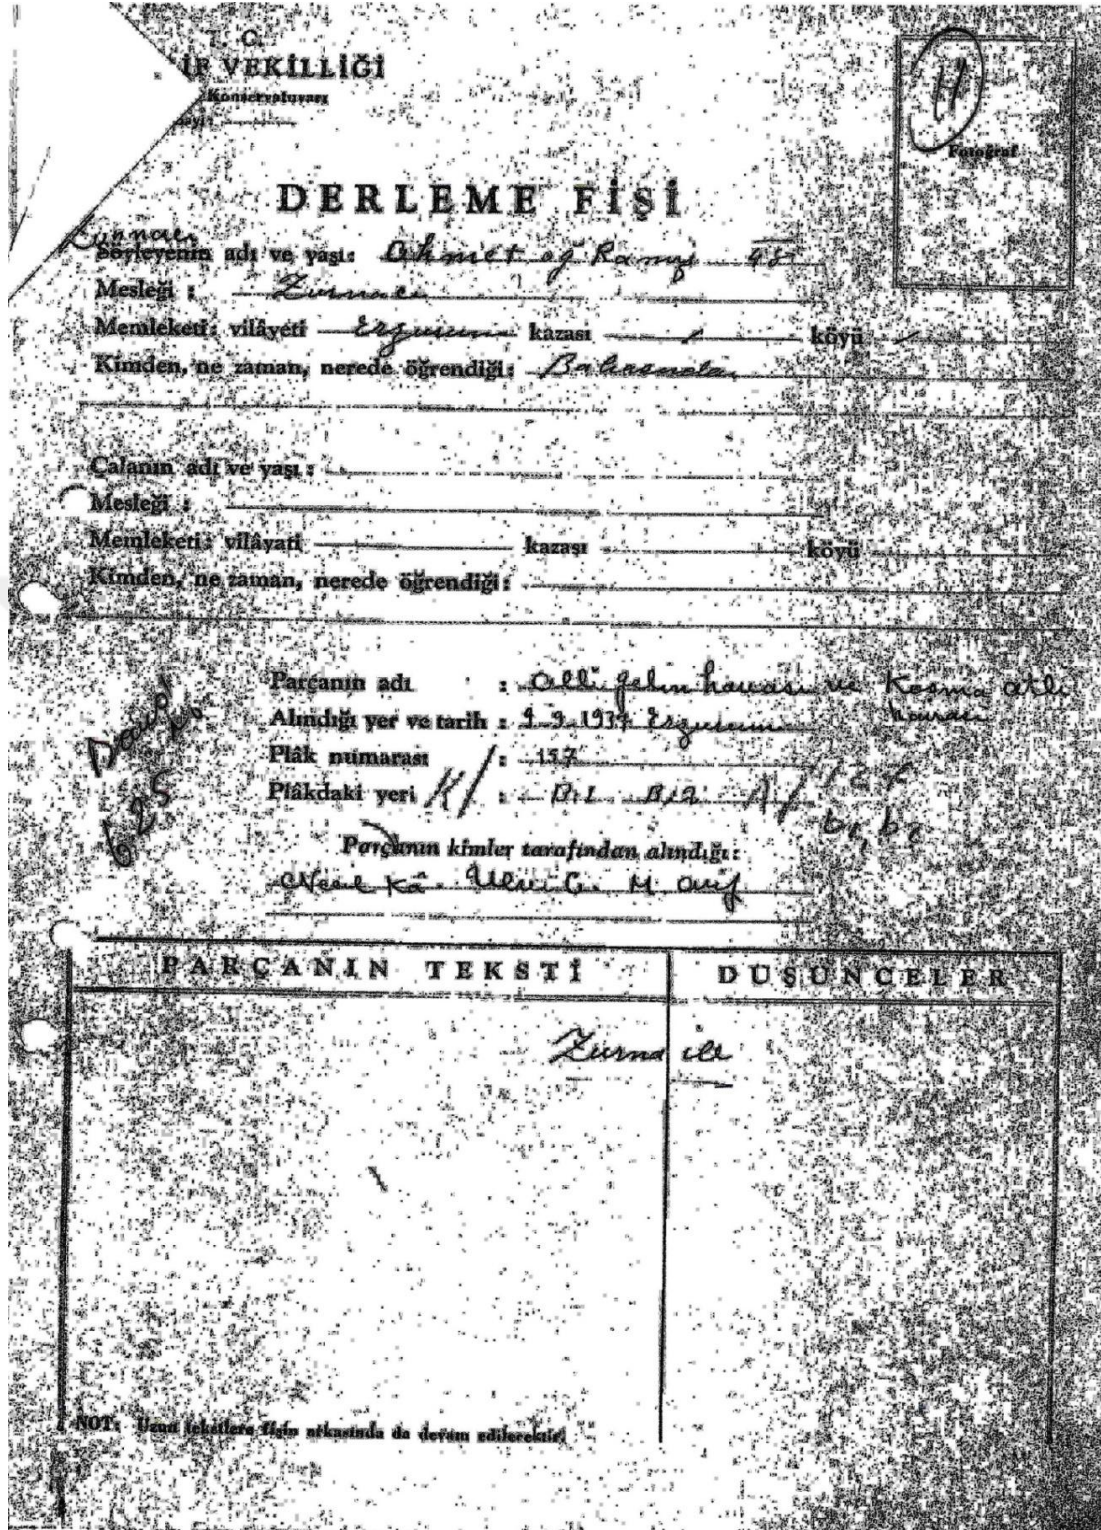 T. C.
İF VEKİLLİĞİ
Konservatuvarı
Fotoğraf
DERLEME FİŞİ
Söyleyenin adı ve yaşı: Ahmet oğ Ramiz 48
Mesleği : Zurnacı
Memleketi: vilâyeti Erzurum kazası / köyü /
Kimden, ne zaman, nerede öğrendiği: Babasından
Çalanın adı ve yaşı :
Mesleği :
Memleketi: vilâyati kazası köyü
Kimden, ne zaman, nerede öğrendiği:
Parçanın adı : Alli gelin havası ve Kosma atlı
havası
Alındığı yer ve tarih : 9-9-1937 Erzurum
Plâk numarası : 157
Plâkdaki yeri : B,1 B,2
b1, b2
625
Parçanın kimler tarafından alındığı:
Ulvi C. M. Arif
PARÇANIN TEKSTİ DÜŞÜNCELER
Zurna ile
NOT: Uzun tekstlere fişin arkasında da devam edilecektir.